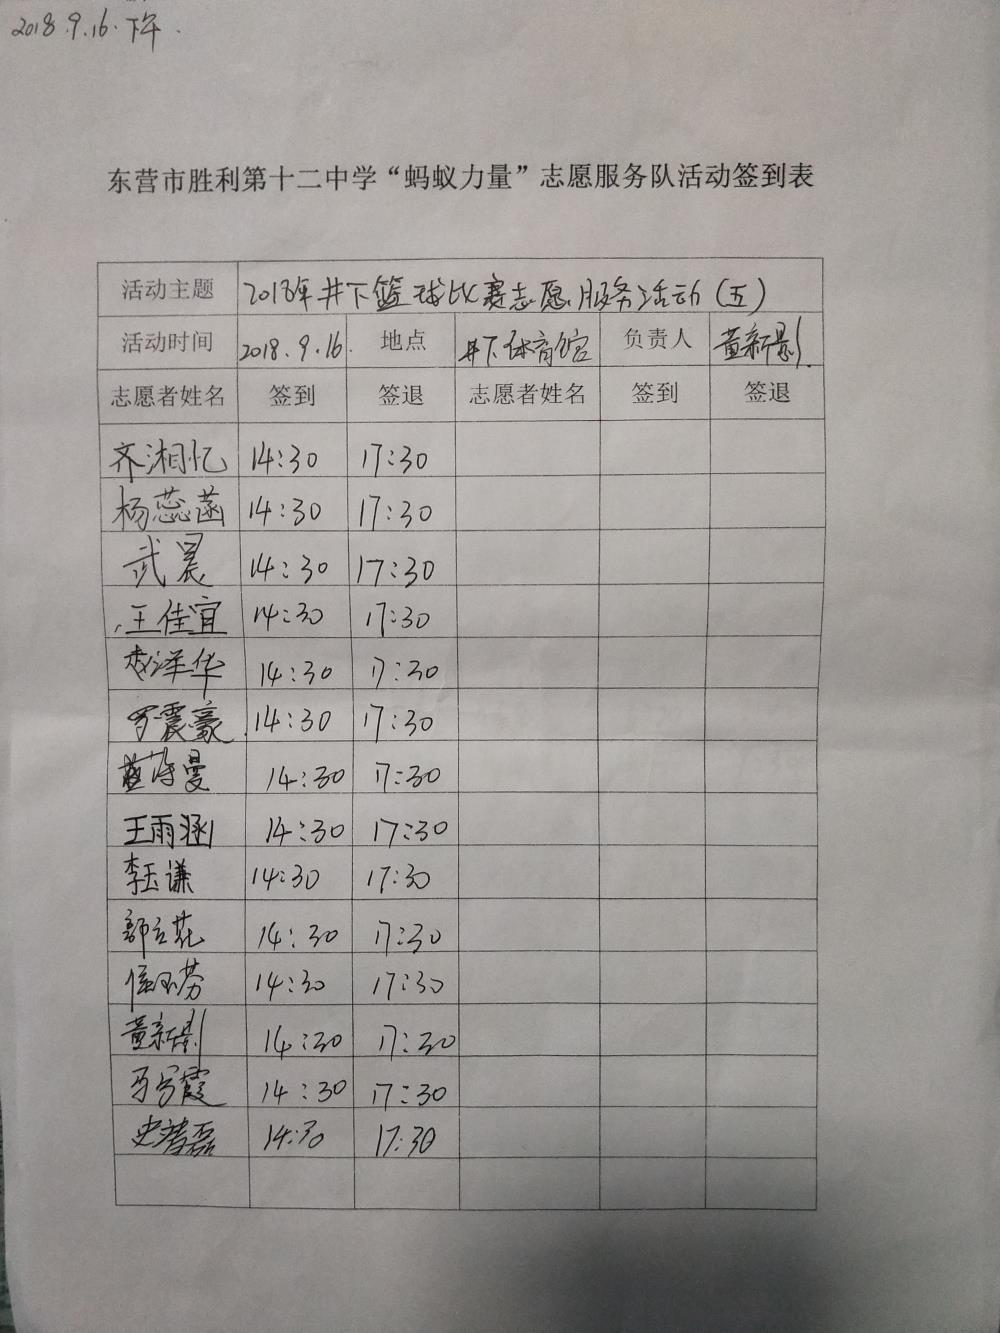 2018.9.16.下午.
东营市胜利第十二中学“蚂蚁力量”志愿服务队活动签到表
活动主题 2018年井下篮球比赛志愿服务活动（五）
活动时间 2018.9.16. 地点 井下体育馆 负责人 董新影
志愿者姓名 签到 签退 志愿者姓名 签到 签退
齐湘忆 14:30 17:30
杨蕊菡 14:30 17:30
武晨 14:30 17:30
王佳宜 14:30 17:30
14:30 17:30
罗震豪 14:30 17:30
14:30 17:30
王雨涵 14:30 17:30
李玉谦 14:30 17:30
郭立花 14:30 17:30
14:30 17:30
董新影 14:30 17:30
14:30 17:30
14:30 17:30